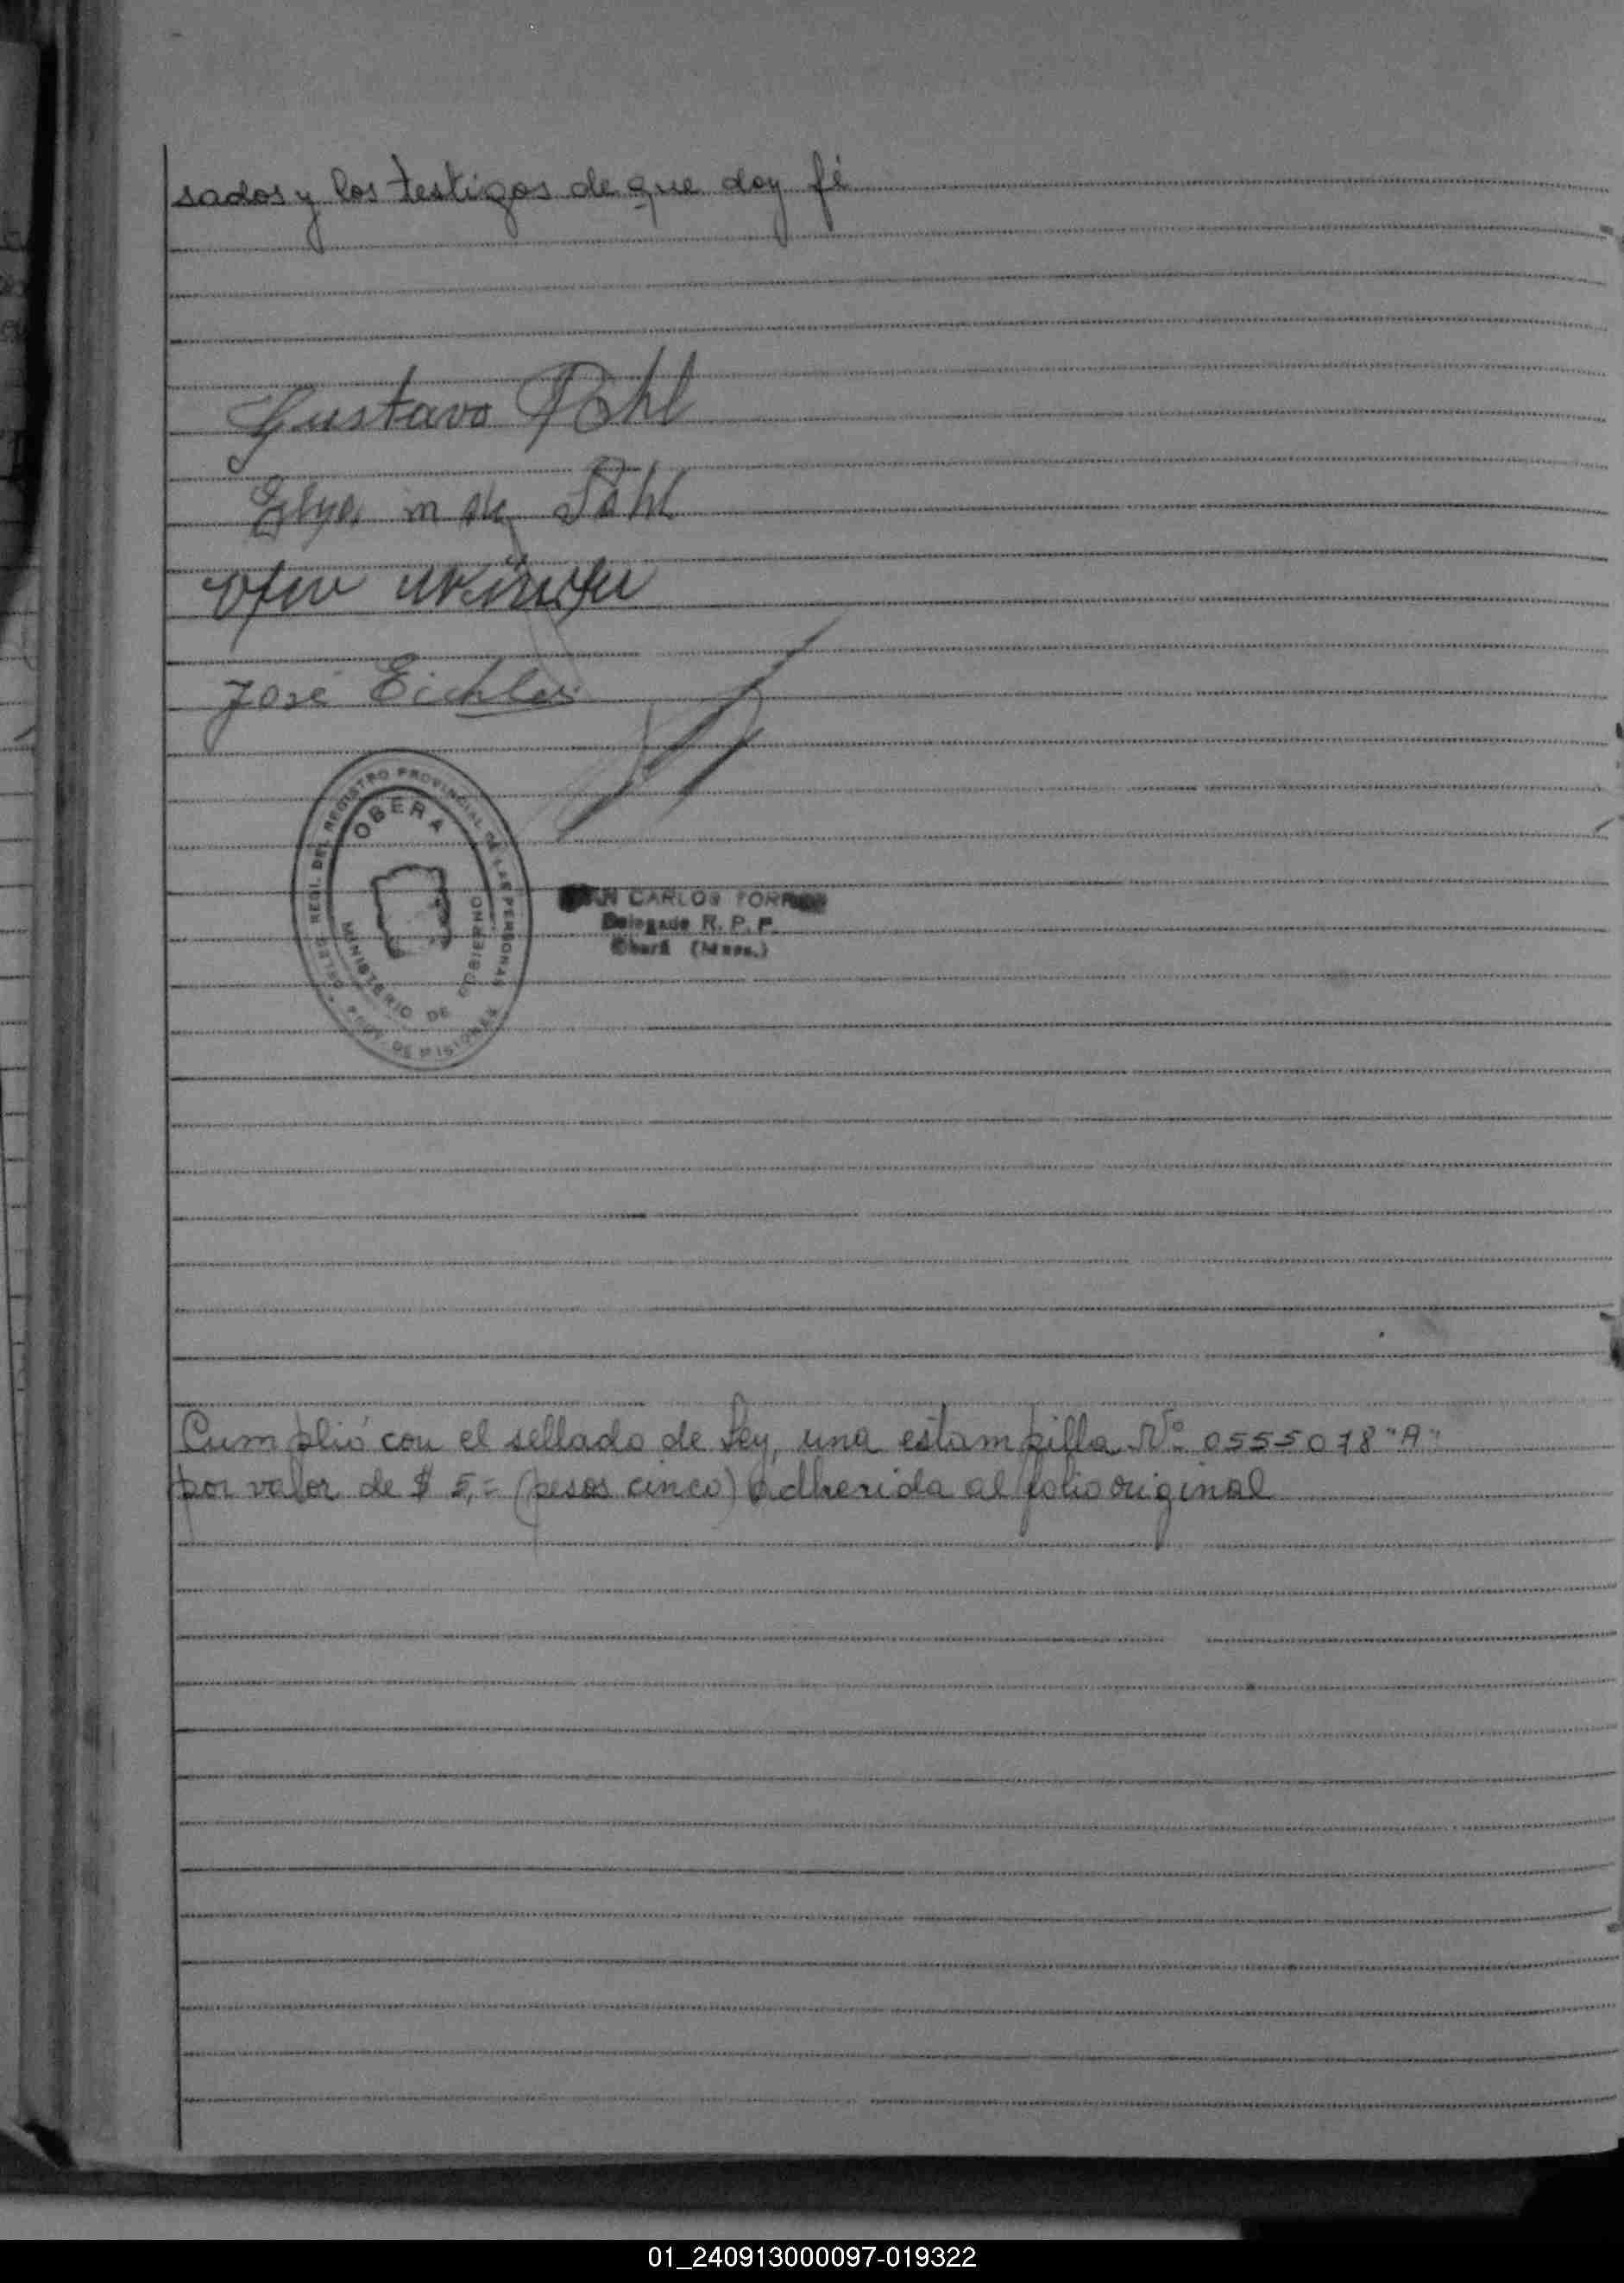 sados y los testigos de que doy fé
Gustavo Pohl
Elya m de Pohl
José Eichler
DEL REGISTRO PROVINCIAL DE LAS PERSONAS
OBERA
MINISTERIO DE GOBIERNO
PROV. DE MISIONES
CARLOS TORRES
Delegado R. P. P.
Oberá (Mnes.)
Cumplió con el sellado de Ley, una estampilla Nº 0555078 "A"
por valor de $ 5,= (pesos cinco) adherida al folio original
01_240913000097-019322